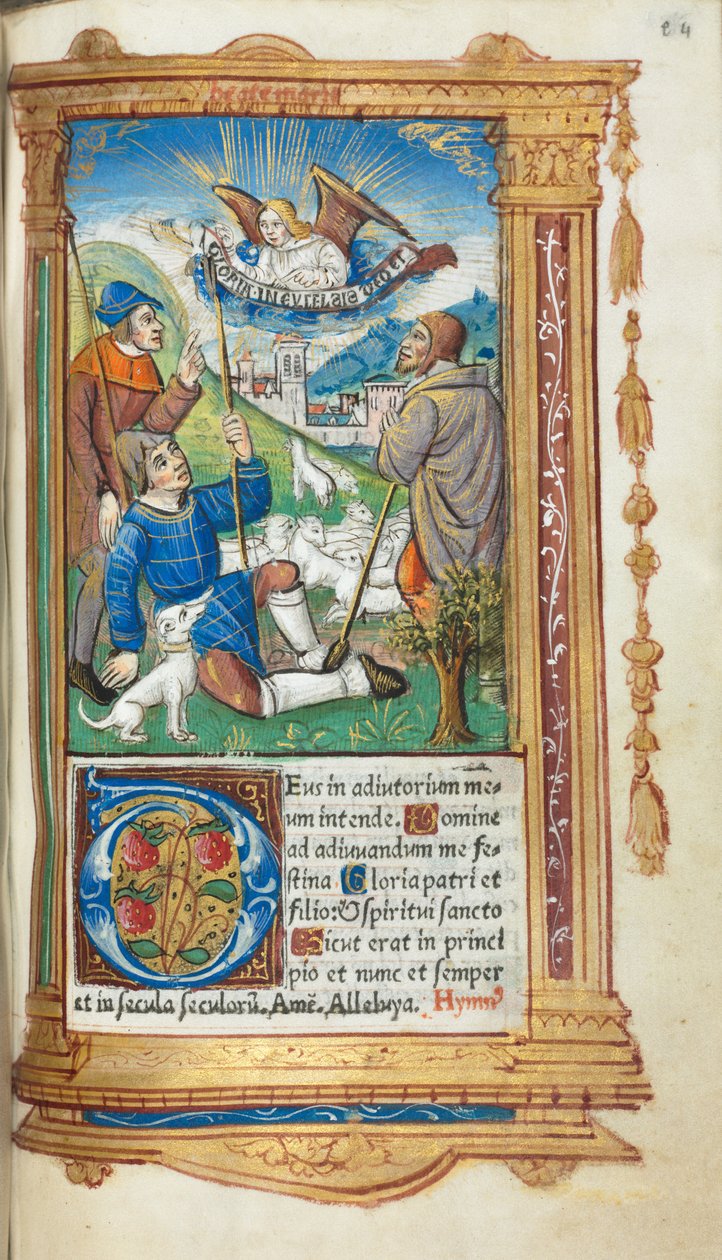 e 4
beate marie
GLORIA·IN·EXCELSIS DEO ET
Deus in adiutorium me⸗
um intende. Domine
ad adiuuandum me fe⸗
stina Gloria patri et
filio: & spiritui sancto
Sicut erat in princi
pio et nunc et semper
et in secula seculorū. Amē. Alleluya. Hymnꝰ